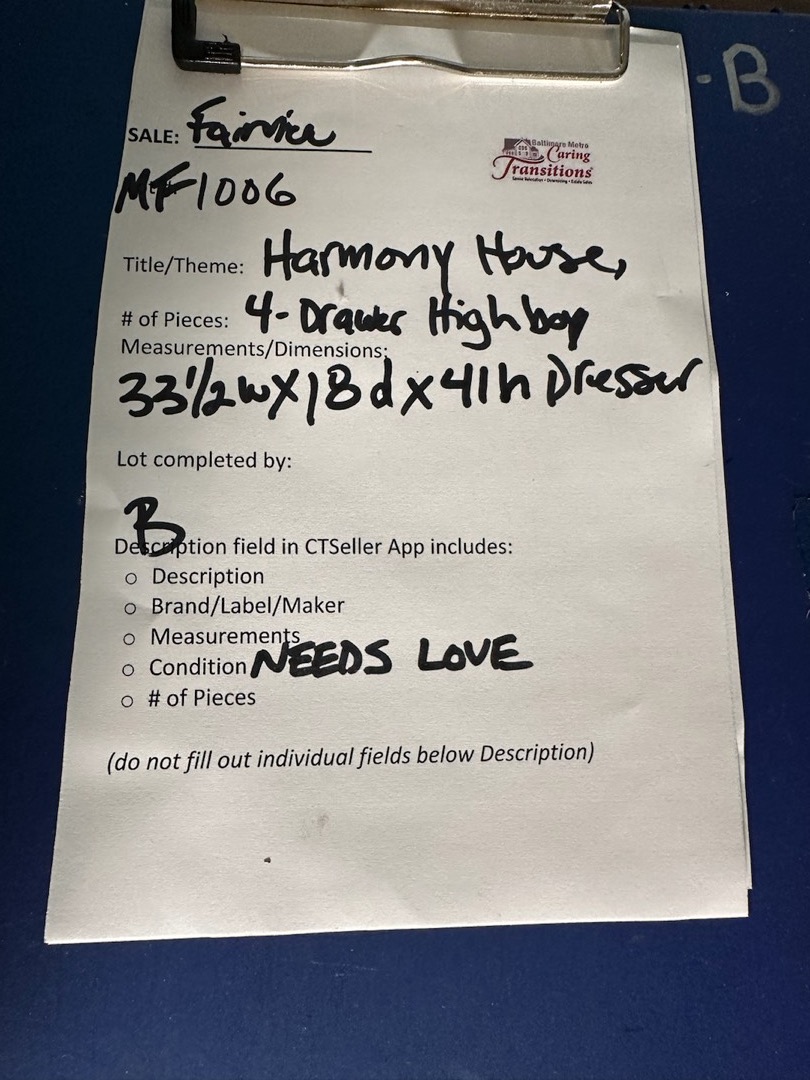 -B
SALE: Fairview
Baltimore Metro
Caring
Transitions
Senior Relocation • Downsizing • Estate Sales
MF1006
Title/Theme: Harmony House,
# of Pieces: 4-Drawer Highboy
Measurements/Dimensions:
33 1/2 w X 18 d x 41 h Dresser
Lot completed by:
B
Description field in CTSeller App includes:
○ Description
○ Brand/Label/Maker
○ Measurements
○ Condition NEEDS LOVE
○ # of Pieces
(do not fill out individual fields below Description)